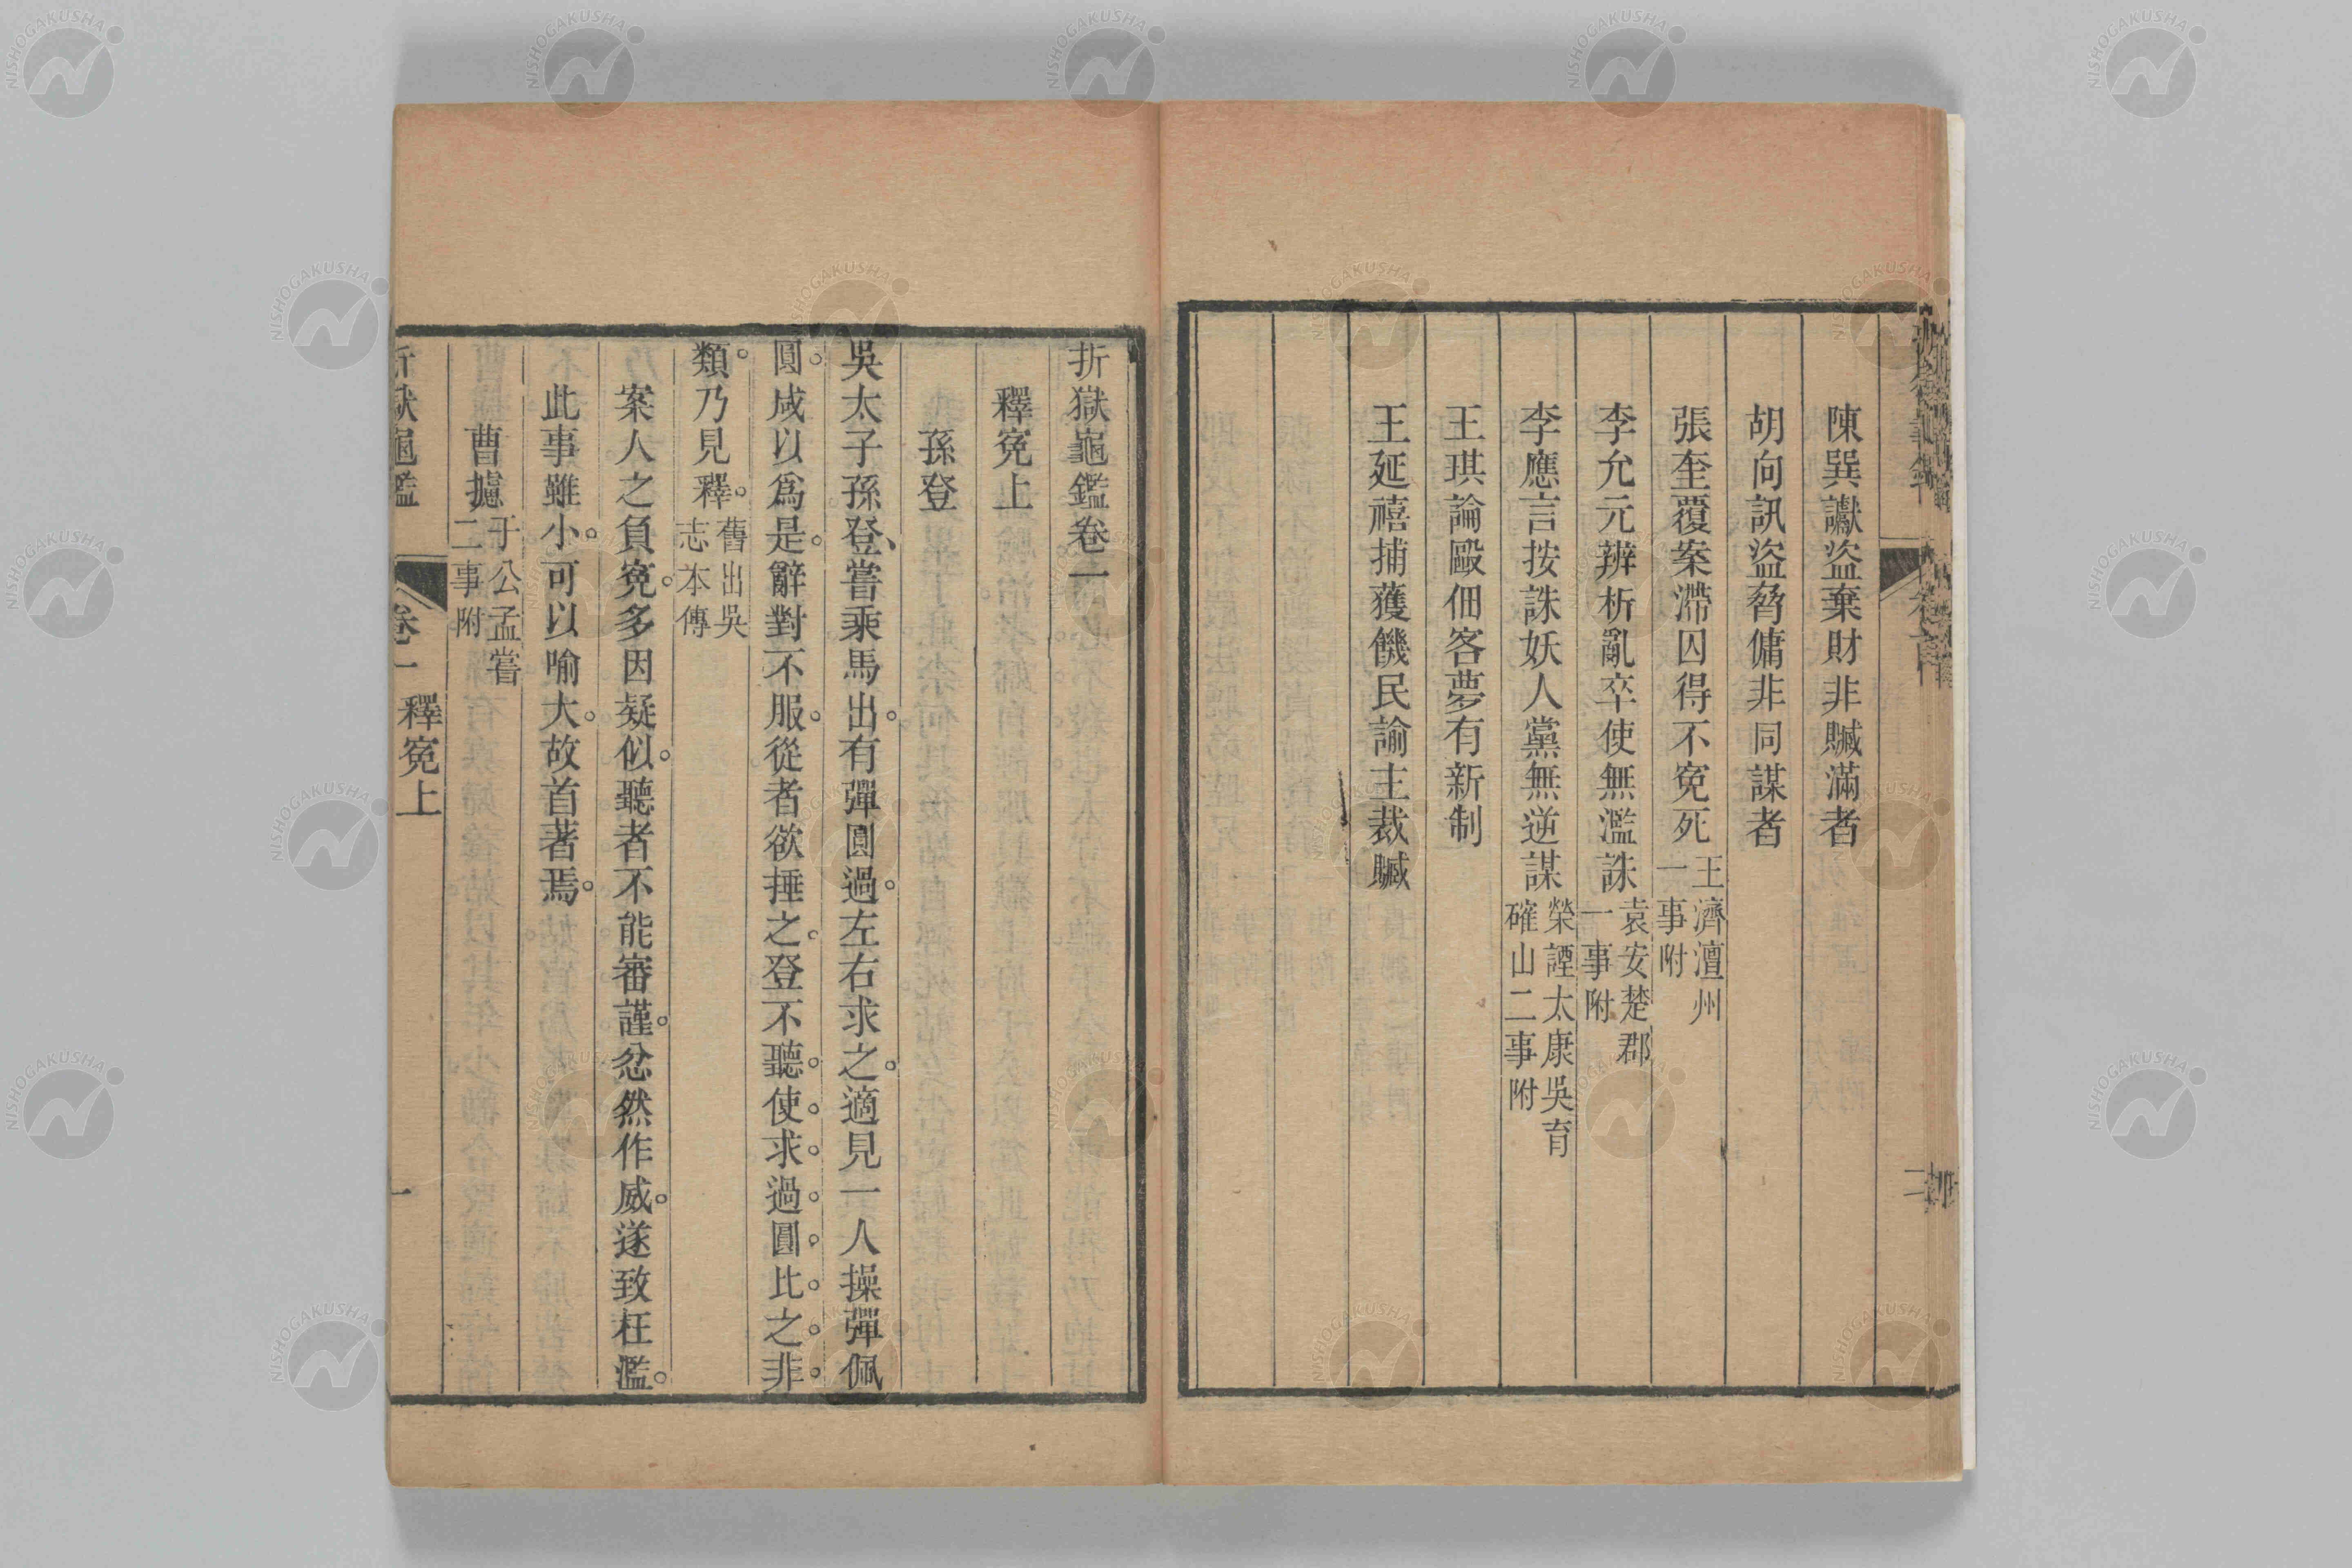 陳巽讞盜棄財非贓滿者
胡向訊盜脅傭非同謀者
張奎覆案滯囚得不寃死王濟澶州一事附
李允元辨析亂卒使無濫誅袁安楚郡一事附
李應言按誅妖人黨無逆謀榮諲太康吳育確山二事附
王琪論毆佃客夢有新制
王延禧捕獲饑民諭主裁贓
折獄龜鑑卷一
釋寃上
孫登
吳太子孫登、嘗乘馬出。有彈圓過。左右求之。適見一人操彈佩
圓。咸以爲是。辭對不服。從者欲捶之。登不聽。使。求。過。圓。比。之。非。
類。乃見釋。舊出吳志本傳
案人之負寃。多因疑似。聽者不能審謹。忿然作威。遂致枉濫。
此事雖小。可以喻大。故首著焉。
曹攄于公孟嘗二事附
折獄龜鑑 卷一 釋寃上 一
NISHOGAKUSHA